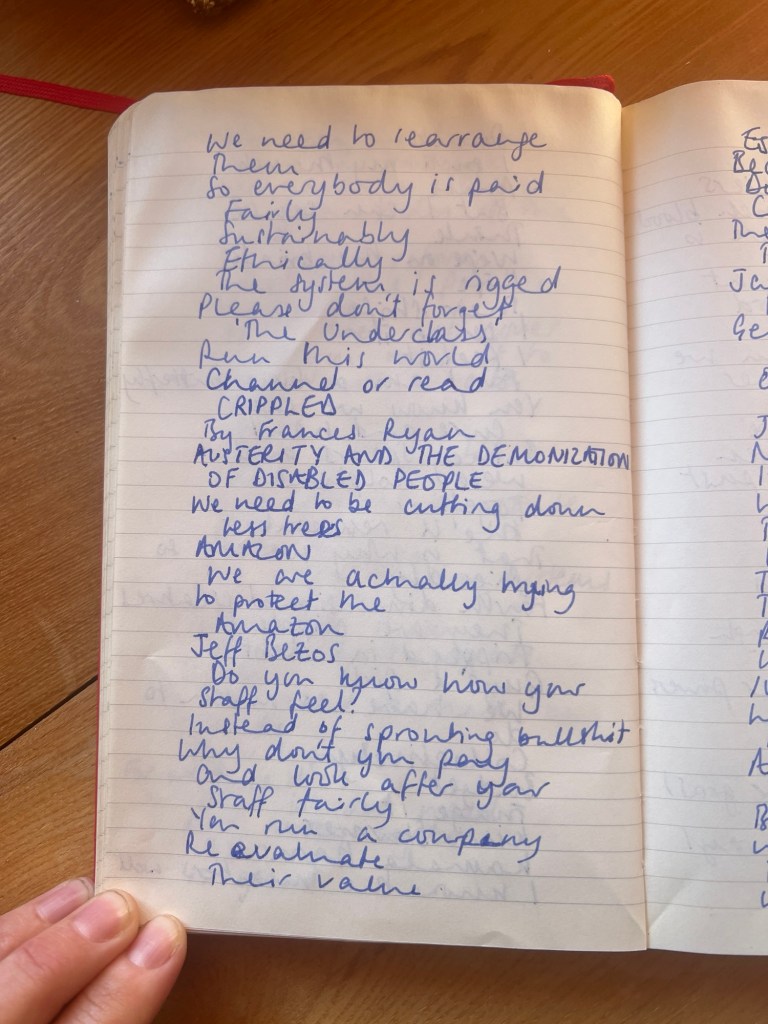 We need to rearrange
Them
So everybody is paid
Fairly
Sustainably
Ethically
The system is rigged
Please don't forget
'The Underclass'
Run this world
Channel or read
CRIPPLED
By Frances Ryan
AUSTERITY AND THE DEMONIZATION
OF DISABLED PEOPLE
We need to be cutting down
less trees
AMAZON
We are actually trying
to protect the
Amazon
Jeff Bezos
Do you know how your
staff feel?
Instead of sprouting bullshit
Why don't you pay
and look after your
staff fairly
You run a company
Re evaluate
Their value